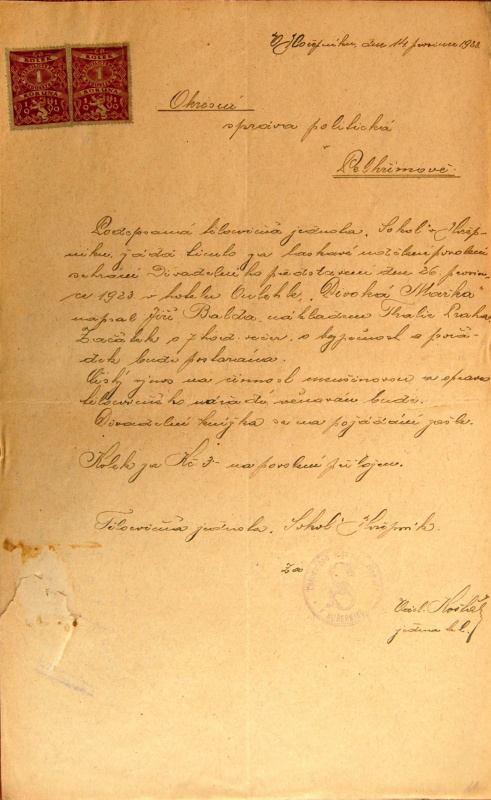 V Hořepníku, dne 14 prosince 1923.
KOLEK
1
KORUNA
KOLEK
1
KORUNA
Okresní
správa politická
v
Pelhřimově.
Podepsaná tělocvičná jednota "Sokol" v Hořep-
níku, žádá tímto za laskavé udělení povolení
sehrání Divadelního představení dne 26 prosin-
ce 1923. v hotelu "Divoká Mařka"
napsal Jiří Balda, nákladem Thalie Praha
Začátek o 7 hod. večer, o bezpečnost a pořá-
dek bude postaráno.
Čistý výnos na činnost a opravu
tělocvičného nářadí, věnován bude.
Divadelní knížka se na požádání zašle.
Kolek za Kč 3- na povolení přiložen.
Tělocvičná jednota "Sokol" Hořepník.
Za
jednatel.